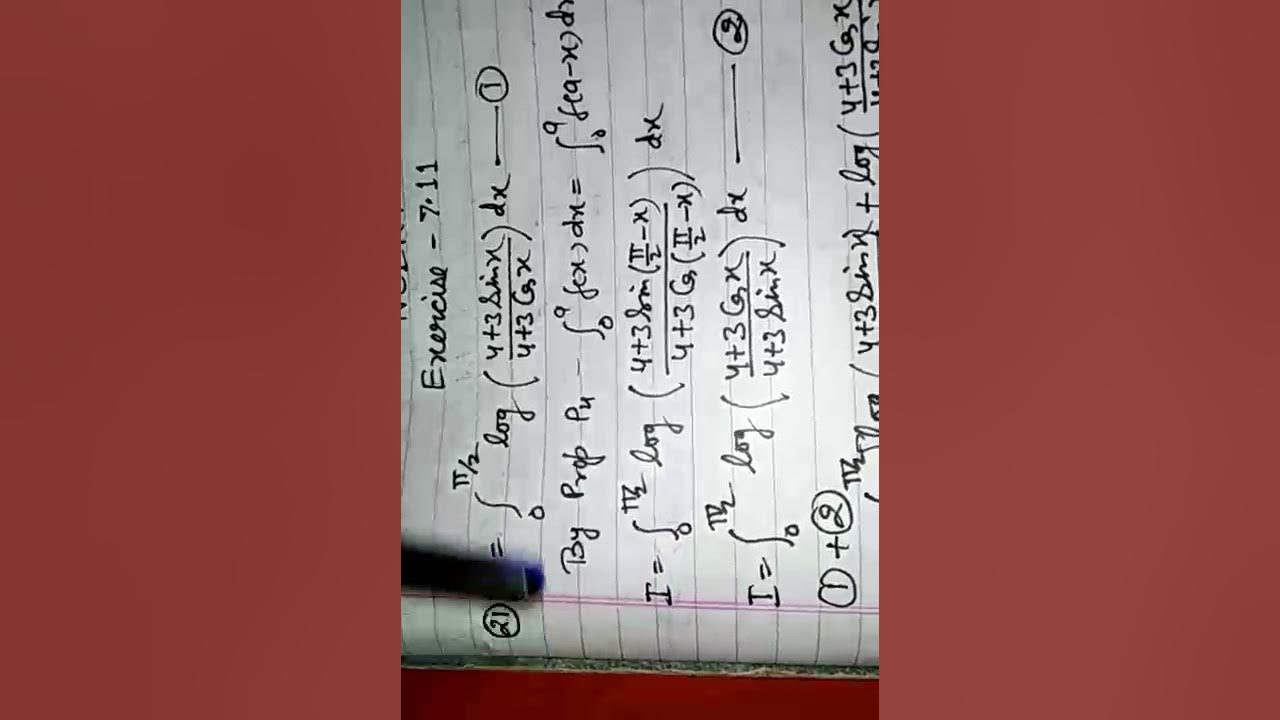 Exercise - 7.11
(21) = ∫₀^(π/2) log ( (4+3 Sin x) / (4+3 Cos x) ) dx —— (1)
By Prop P4 - ∫₀^a f(x) dx = ∫₀^a f(a-x) dx
I = ∫₀^(π/2) log ( (4+3 Sin (π/2 - x)) / (4+3 Cos (π/2 - x)) ) dx
I = ∫₀^(π/2) log ( (4+3 Cos x) / (4+3 Sin x) ) dx —— (2)
(1) + (2)
π/2 (4+3 Sin x) + log ( (4+3 Cos x)